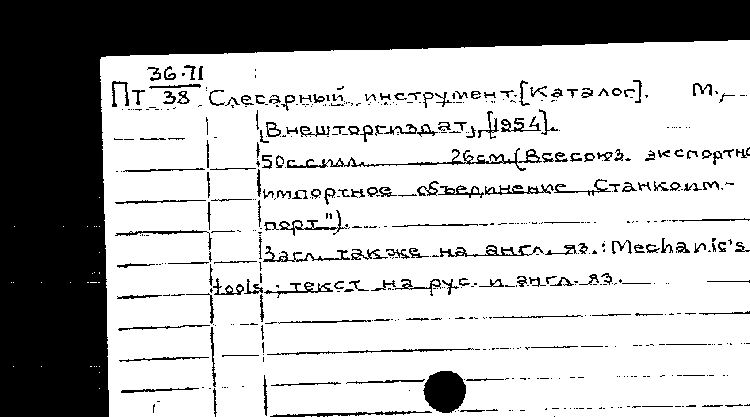 36.71
ПТ 38 Слесарный инструмент.[Каталог]. М.,
[Внешторгиздат], [1954].
50с.с илл. 26см.(Всесоюз. экспортно
импортное объединение „Станкоим-
порт").
Загл. также на англ. яз.: Mechanic's
tools.; текст на рус. и англ. яз.